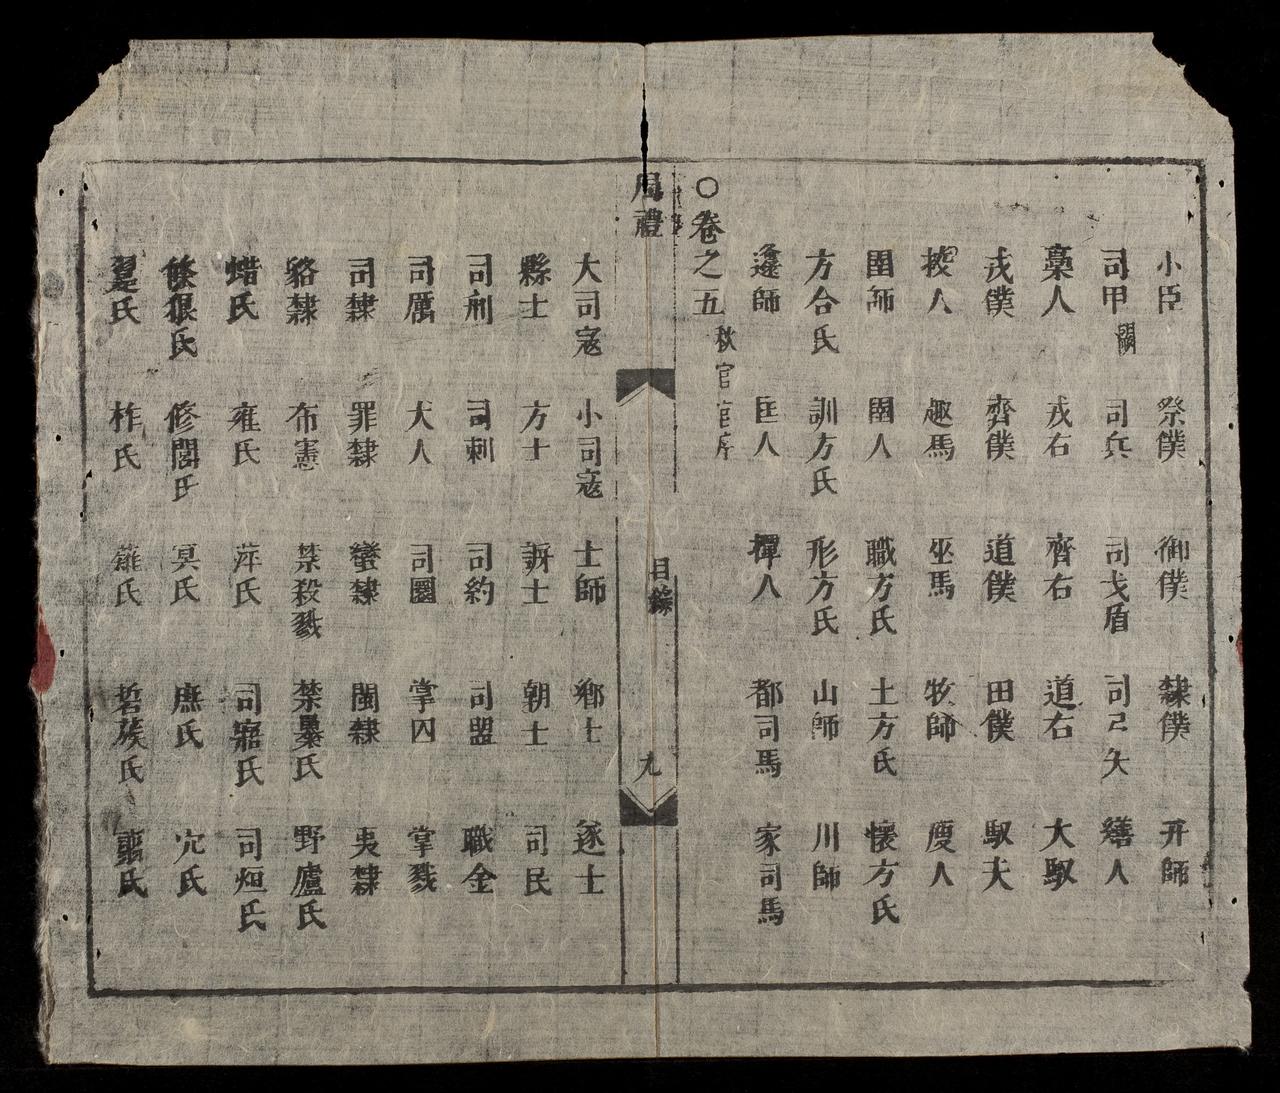 小臣 祭僕 御僕 隸僕 弁師
司甲闕 司兵 司戈盾 司弓矢 繕人
稾人 戎右 齊右 道右 大馭
戎僕 齊僕 道僕 田僕 馭夫
挍人 趣馬 巫馬 牧師 廋人
圉師 圉人 職方氏 土方氏 懷方氏
方合氏 訓方氏 形方氏 山師 川師
邍師 匡人 撢人 都司馬 家司馬
○卷之五 秋官官序
周禮 目錄 九
大司寇 小司寇 士師 鄉士 遂士
縣士 方士 訝士 朝士 司民
司刑 司刺 司約 司盟 職金
司厲 犬人 司圜 掌囚 掌戮
司隸 罪隸 蠻隸 閩隸 夷隸
貉隸 布憲 禁殺戮 禁暴氏 野廬氏
蜡氏 雍氏 萍氏 司寤氏 司烜氏
條狼氏 修閭氏 冥氏 庶氏 穴氏
翨氏 柞氏 薙氏 硩蔟氏 翦氏